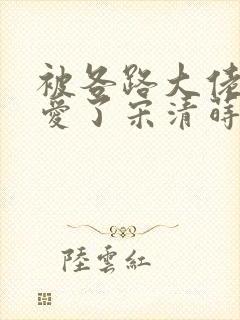 被各路大佬
愛了宋清蒔
陸雲紅